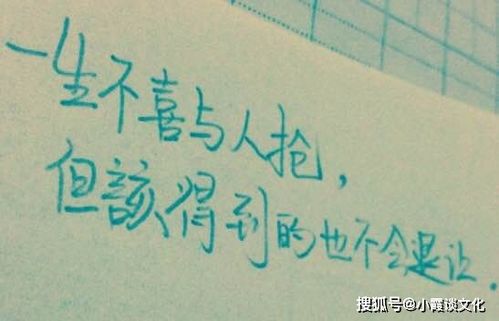 一生不喜与人抢，
但該得到的也不会退让．
搜狐号@小霞谈文化